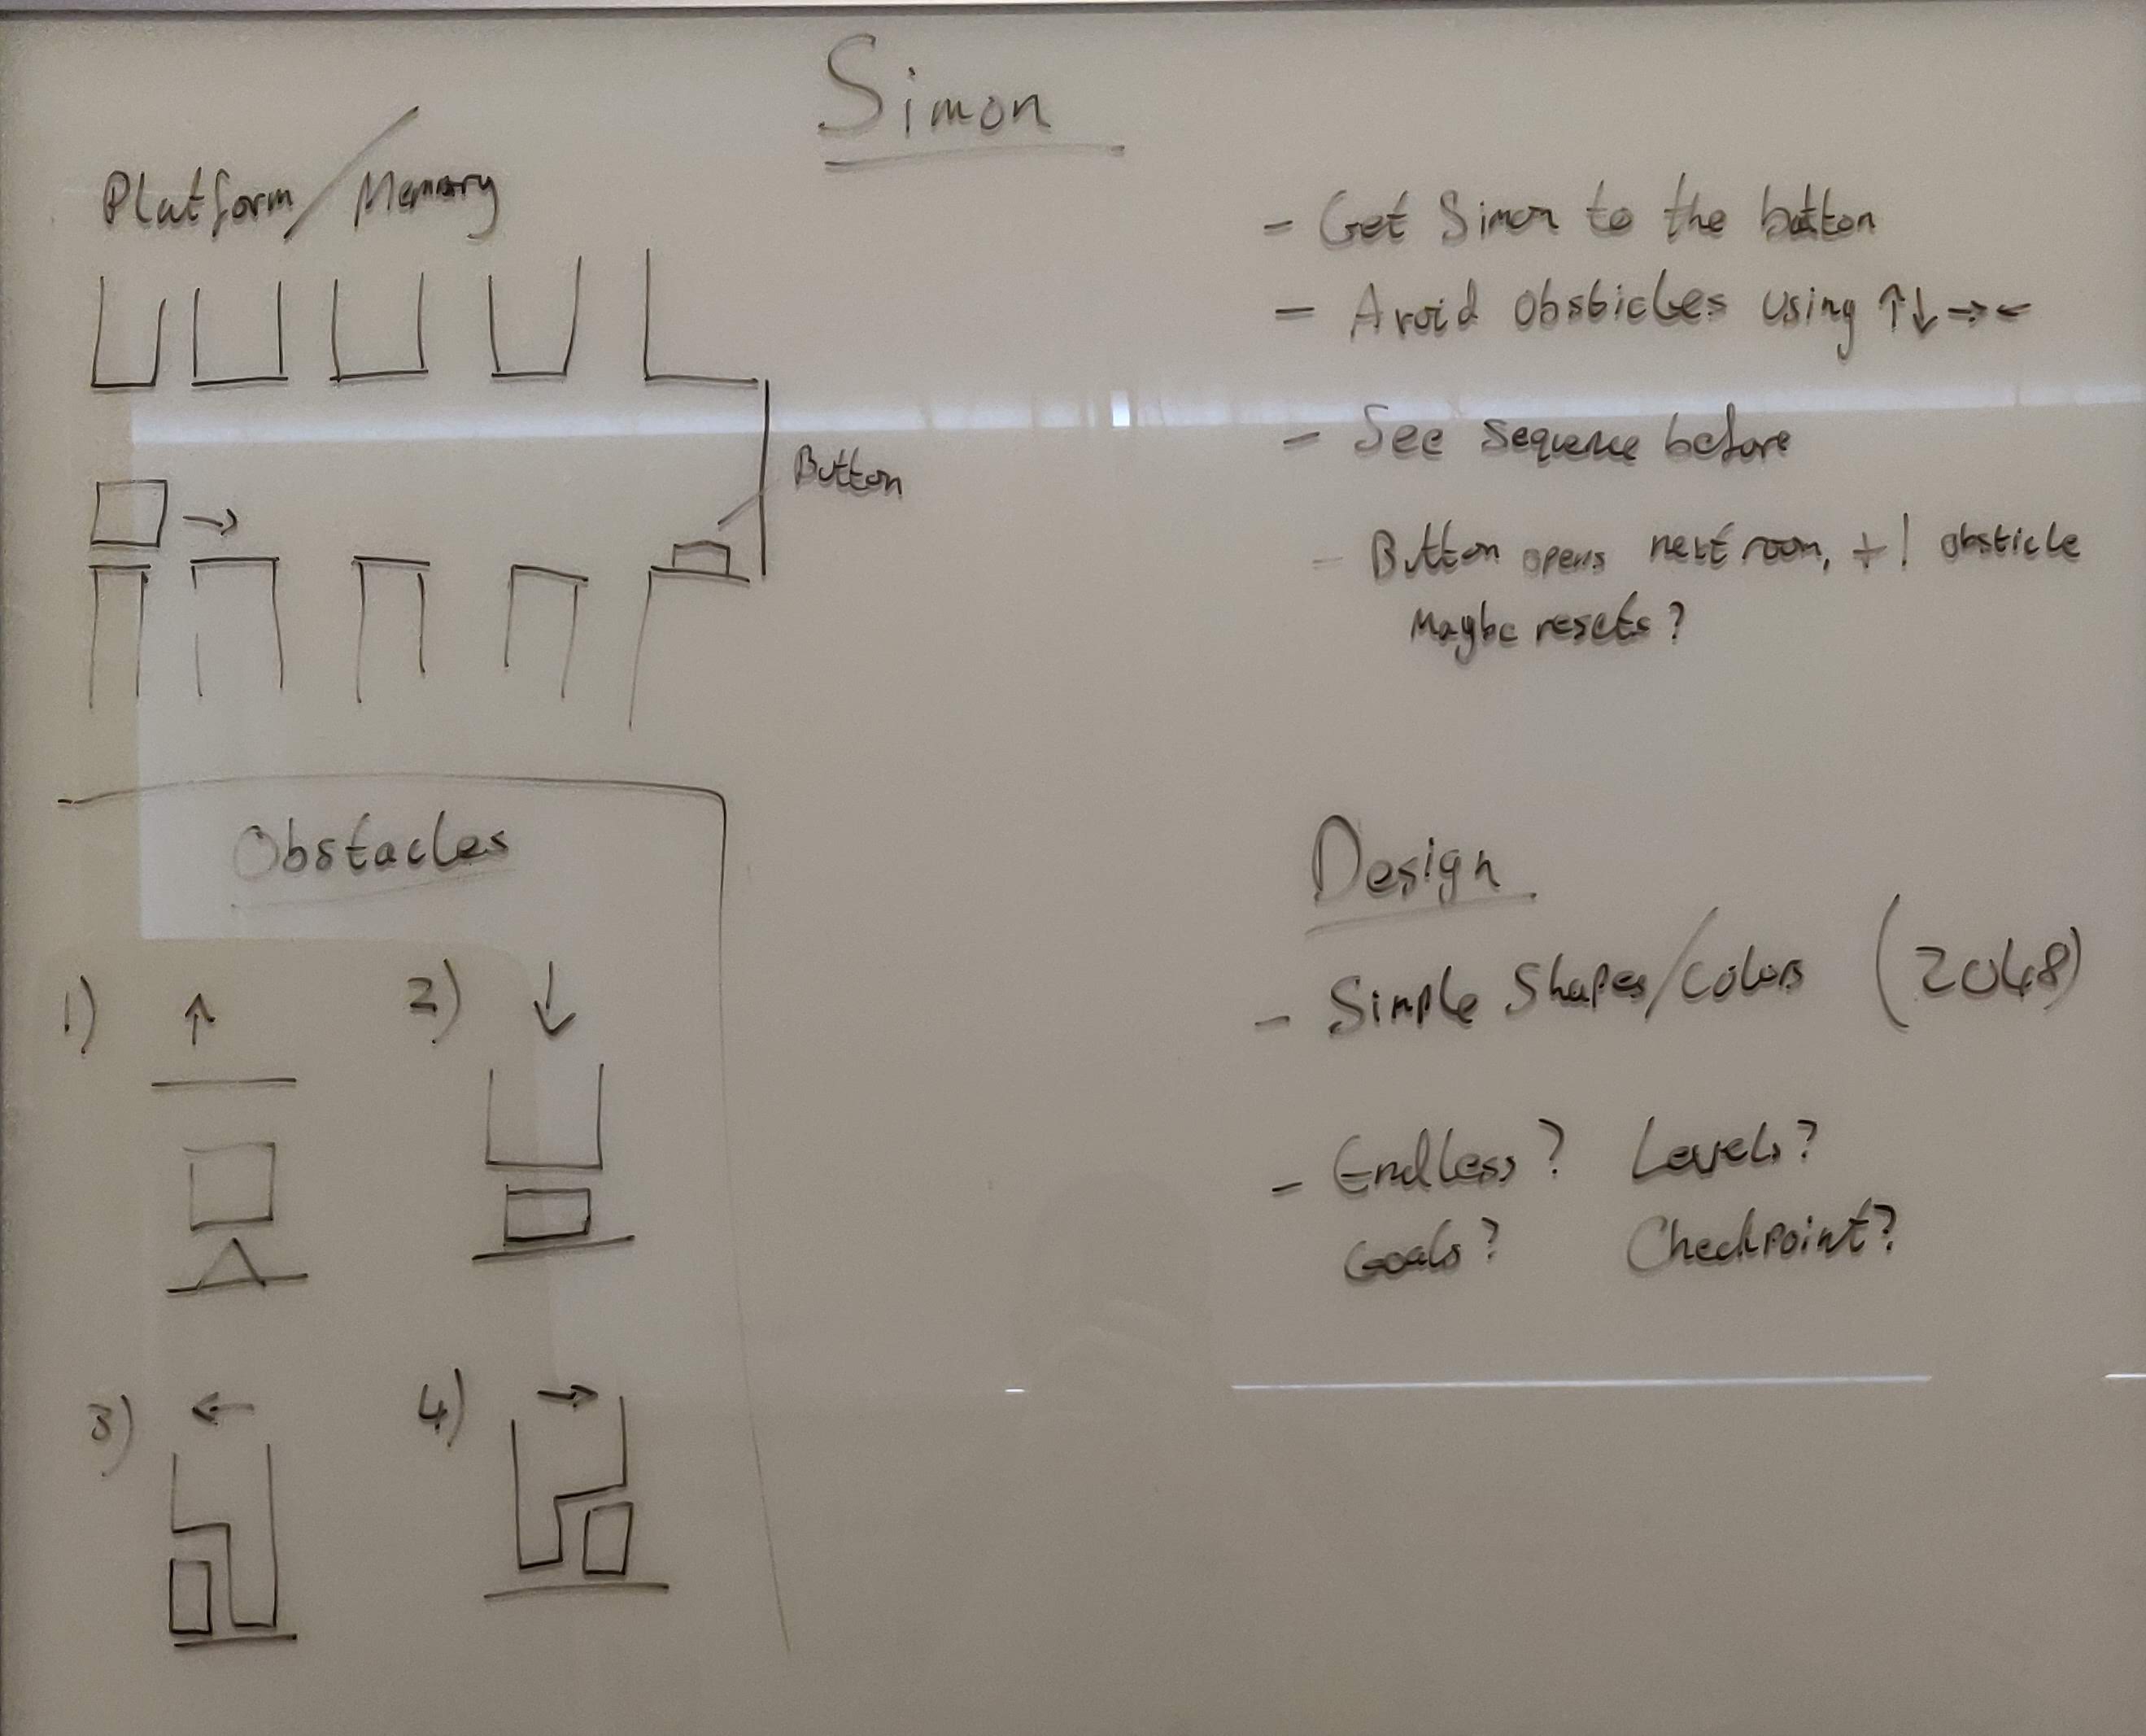 Simon
Platform/Memory
Button
- Get Simon to the button
- Avoid obsticles using ↑↓→←
- See sequence before
- Button opens next room, +1 obsticle
Maybe resets?
Obstacles
1) ↑
2) ↓
3) ←
4) →
Design
- Simple Shapes/Colors (2048)
- Endless? Levels?
Goals? Checkpoint?